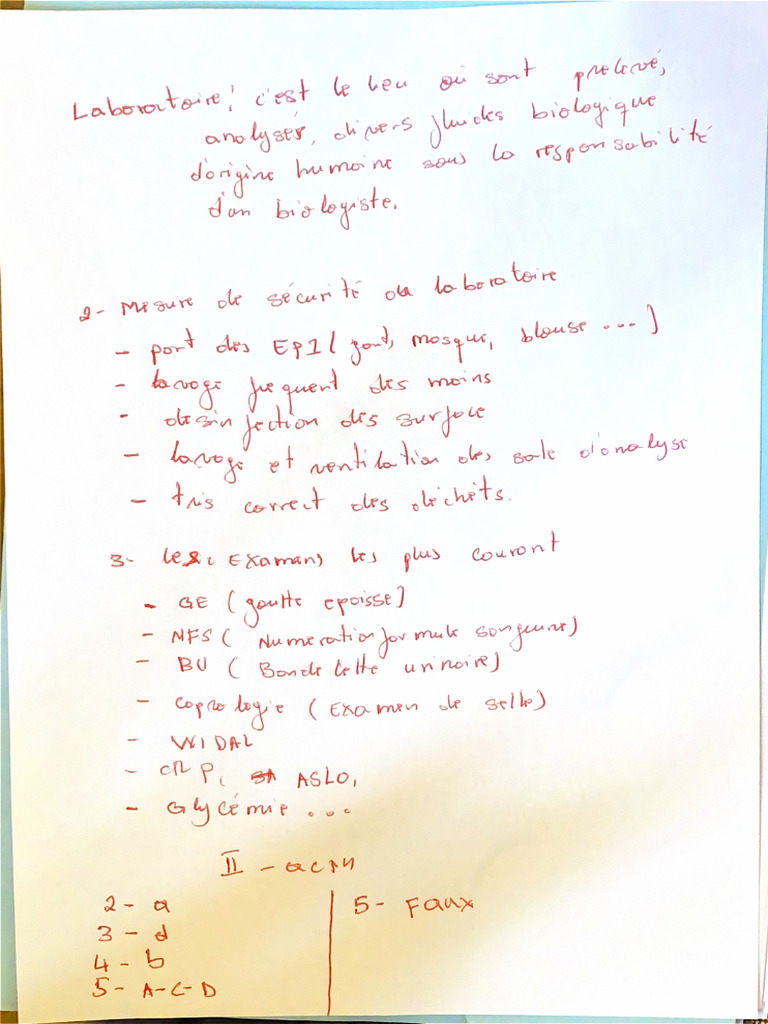 Laboratoire: c'est le lieu où sont prelevé,
analysés, divers fluides biologique
d'origine humaine sous la responsabilité
d'un biologiste.
2- Mesure de sécurité au laboratoire
- port des EPI (gant, masque, blouse ...)
- lavage frequent des mains
- desinfection des surface
- lavage et ventilation des sale d'analyse
- tris correct des déchets.
3- les Examens les plus courant
- GE (goutte epaisse)
- NFS (Numeration formule sanguine)
- BU (Bandelette urinaire)
- coprologie (Examen de selle)
- WIDAL
- CRP, ASLO,
- Glycémie ...
II - QCM
2- a
3- d
4- b
5- A-C-D
5- Faux